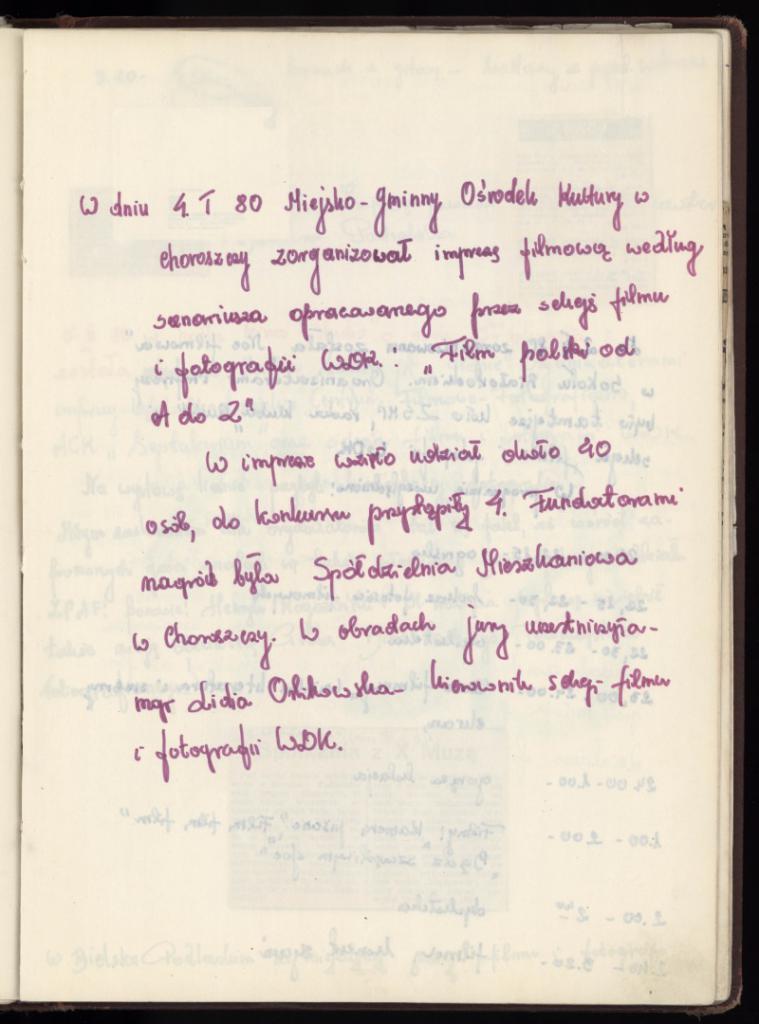 W dniu 4. I 80 Miejsko-Gminny Ośrodek Kultury w
Choroszczy zorganizował imprezę filmową według
scenariusza opracowanego przez sekcję filmu
i fotografii WDK: "Film polski od
A do Z"
W imprezie wzięło udział około 40
osób, do konkursu przystąpiły 4. Fundatorami
nagród była Spółdzielnia Mieszkaniowa
w Choroszczy. W obradach jury uczestniczyła-
mgr Lidia Orlikowska- kierownik sekcji filmu
i fotografii WDK.